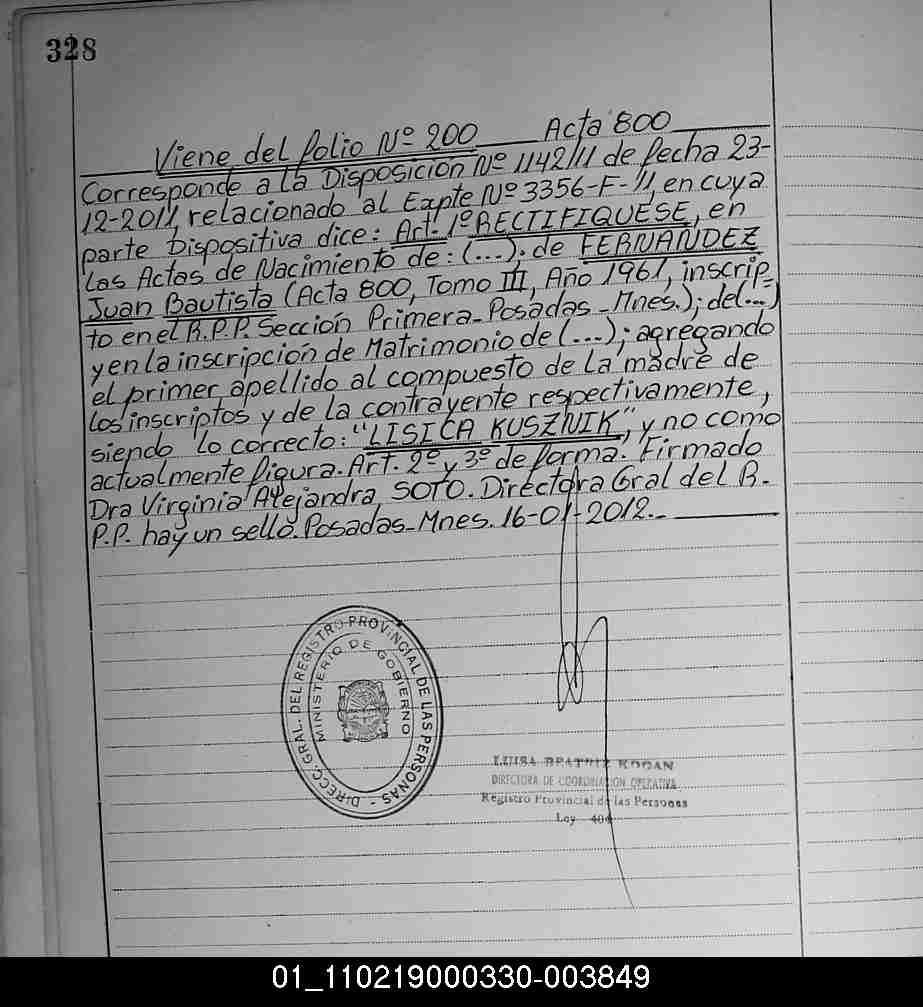 328
Viene del folio Nº 200 Acta 800
Corresponde a la Disposición Nº 1142/11 de fecha 23-
12-2011, relacionado al Expte Nº 3356-F-11, en cuya
parte Dispositiva dice: Art. 1º RECTIFIQUESE, en
las Actas de Nacimiento de: (...); de FERNANDEZ
Juan Bautista (Acta 800, Tomo III, Año 1961, inscrip=
to en el R.P.P. Sección Primera-Posadas-Mnes.); de(...)
y en la inscripción de Matrimonio de (...); agregando
el primer apellido al compuesto de la madre de
los inscriptos y de la contrayente respectivamente,
siendo lo correcto: "LISICA KUSZNIK", y no como
actualmente figura. Art. 2º y 3º de forma. Firmado
Dra Virginia Alejandra SOTO. Directora Gral del R.
P.P. hay un sello. Posadas-Mnes. 16-01-2012.-
DIRECC. GRAL. DEL REGISTRO PROVINCIAL DE LAS PERSONAS -
MINISTERIO DE GOBIERNO
LUISA BEATRIZ KOGAN
DIRECTORA DE COORDINACION OPERATIVA
Registro Provincial de las Personas
Ley 404
01_110219000330-003849